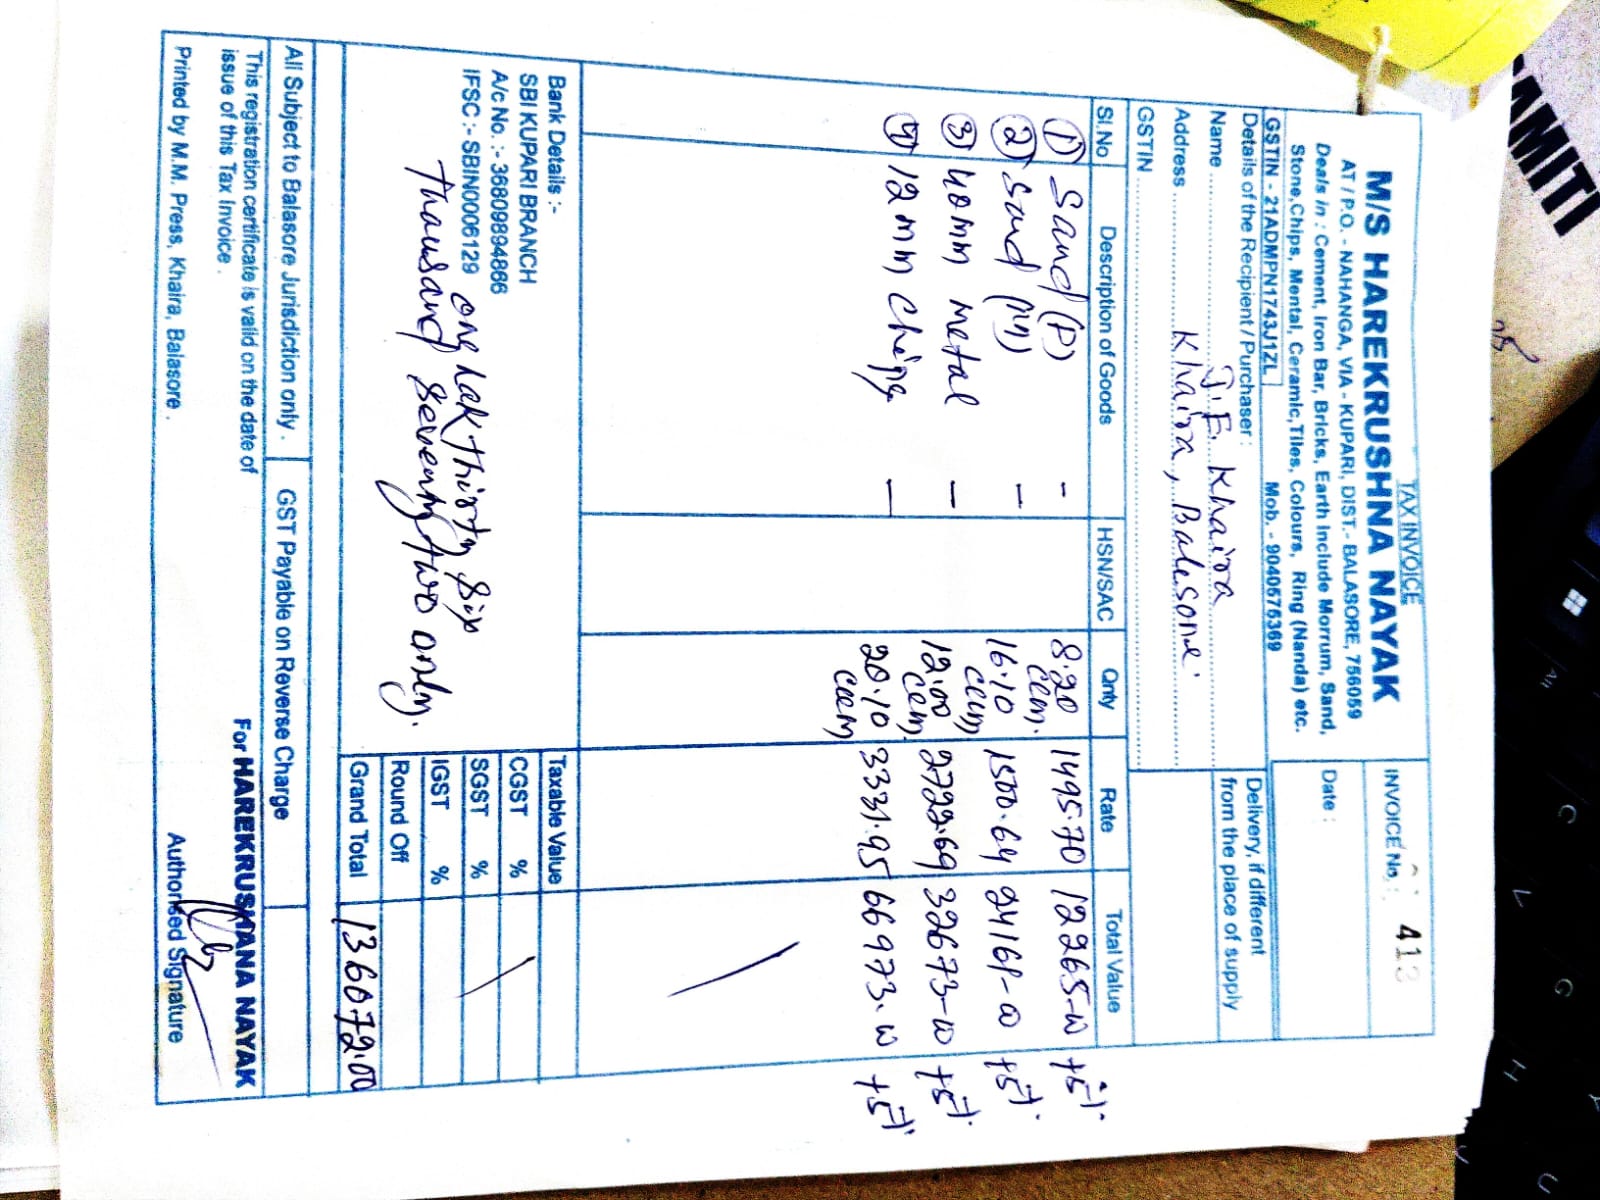 TAX INVOICE
M/S HAREKRUSHNA NAYAK
AT / P.O. - NAHANGA, VIA - KUPARI, DIST.- BALASORE, 756059
Deals in : Cement, Iron Bar, Bricks, Earth Include Morrum, Sand,
Stone,Chips, Mental, Ceramic,Tiles, Colours, Ring (Nanda) etc.
GSTIN - 21ADMPN1743J1ZL Mob. - 9040576369
INVOICE No. : 413
Date :
Details of the Recipient / Purchaser :
Name J.E. Khaira
Address Khaira, Balesore
GSTIN
Delivery, if different
from the place of supply
Sl.No Description of Goods HSN/SAC Qnty Rate Total Value
1 Sand (P) - 8.20 cum. 1495.70 12265-00 +5%
2 Sand (M) - 16.10 cum 1500.64 24161-00 +5%
3 40mm metal - 12.00 cum. 2722.69 32673-00 +5%
4 12mm chips - 20.10 cum 3331.95 66973.00 +5%
Bank Details :-
SBI KUPARI BRANCH
A/c No. :- 36809894866
IFSC :- SBIN0006129
one lak thirty six
thausand seventy two only.
Taxable Value
CGST %
SGST %
IGST %
Round Off
Grand Total 136072.00
All Subject to Balasore Jurisdiction only . GST Payable on Reverse Charge
This registration certificate is valid on the date of
issue of this Tax Invoice .
For HAREKRUSHANA NAYAK
Authorised Signature
Printed by M.M. Press, Khaira, Balasore .
AMITI